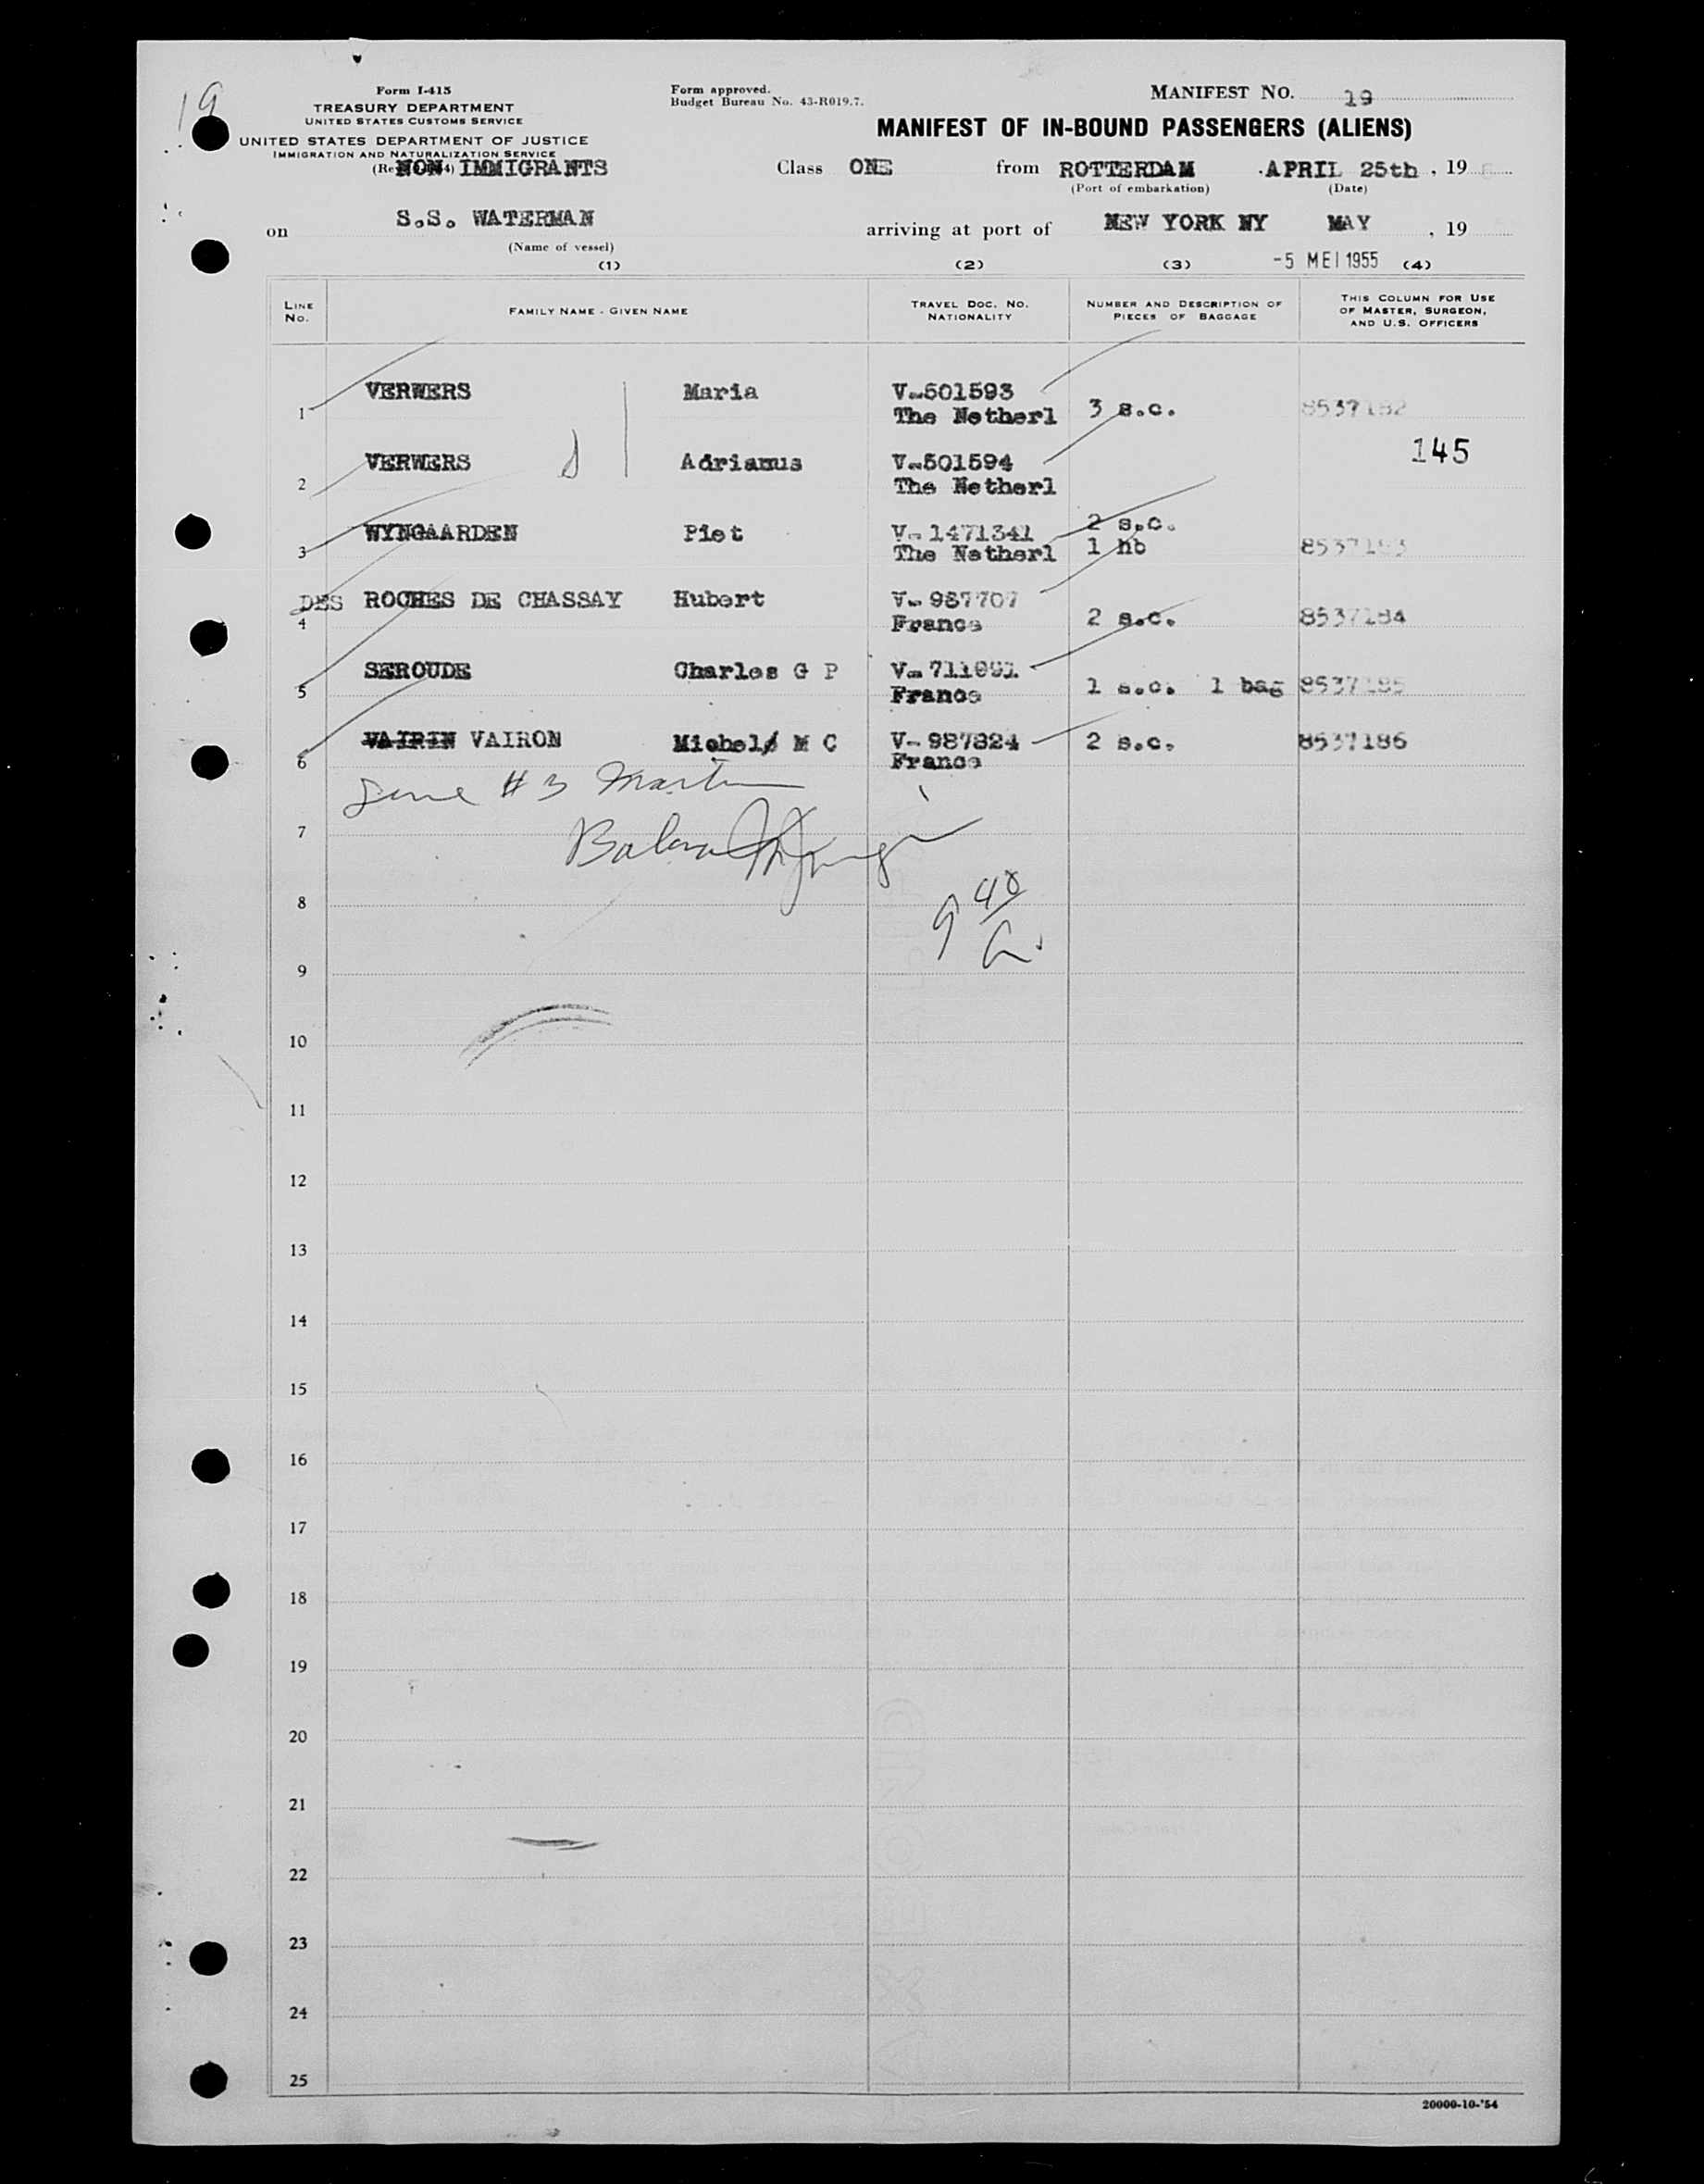 19
Form I-415
TREASURY DEPARTMENT
UNITED STATES CUSTOMS SERVICE
UNITED STATES DEPARTMENT OF JUSTICE
IMMIGRATION AND NATURALIZATION SERVICE
NON IMMIGRANTS
Form approved.
Budget Bureau No. 43-R019.7.
MANIFEST NO. 19
MANIFEST OF IN-BOUND PASSENGERS (ALIENS)
Class ONE from ROTTERDAM APRIL 25th, 19
(Port of embarkation) (Date)
on S.S. WATERMAN arriving at port of NEW YORK NY MAY, 19
(Name of vessel)
-5 MEI 1955
(1) (2) (3) (4)
LINE NO. FAMILY NAME - GIVEN NAME TRAVEL DOC. NO. NATIONALITY NUMBER AND DESCRIPTION OF PIECES OF BAGGAGE THIS COLUMN FOR USE OF MASTER, SURGEON, AND U.S. OFFICERS
1 VERWERS Maria V-501593 The Netherl 3 s.c. 8537182
145
2 VERWERS Adrianus V-501594 The Netherl
3 WYNGAARDEN Piet V-1471341 The Netherl 2 s.c. 1 hb 8537183
4 DES ROCHES DE CHASSAY Hubert V-987707 France 2 s.c. 8537184
5 SEROUDE Charles G P V- France 1 s.c. 1 bag 8537185
6 VAIRIN VAIRON Michel M C V-987824 France 2 s.c. 8537186
# 3 Martin
7
8
9
10
11
12
13
14
15
16
17
18
19
20
21
22
23
24
25
20000-10-'54